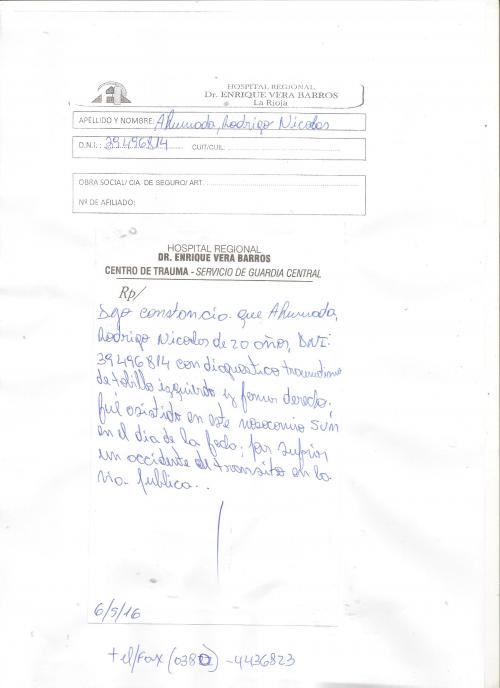 HOSPITAL REGIONAL
Dr. ENRIQUE VERA BARROS
La Rioja
APELLIDO Y NOMBRE: Ahumada, Rodrigo Nicolas
D.N.I.: 39496814 CUIT/CUIL:
OBRA SOCIAL/ CIA. DE SEGURO/ ART.
Nº DE AFILIADO:
HOSPITAL REGIONAL
DR. ENRIQUE VERA BARROS
CENTRO DE TRAUMA - SERVICIO DE GUARDIA CENTRAL
Rp/
Dejo constancia que Ahumada,
Rodrigo Nicolas de 20 años, DNI:
39496814 con diagnostico traumatismo
de tobillo izquierdo y femur derecho.
fué asistido en este nosocomio
en el dia de la fecha; por sufrir
un accidente de transito en la
via publica..
6/5/16
tel/fax (0380) -4436823